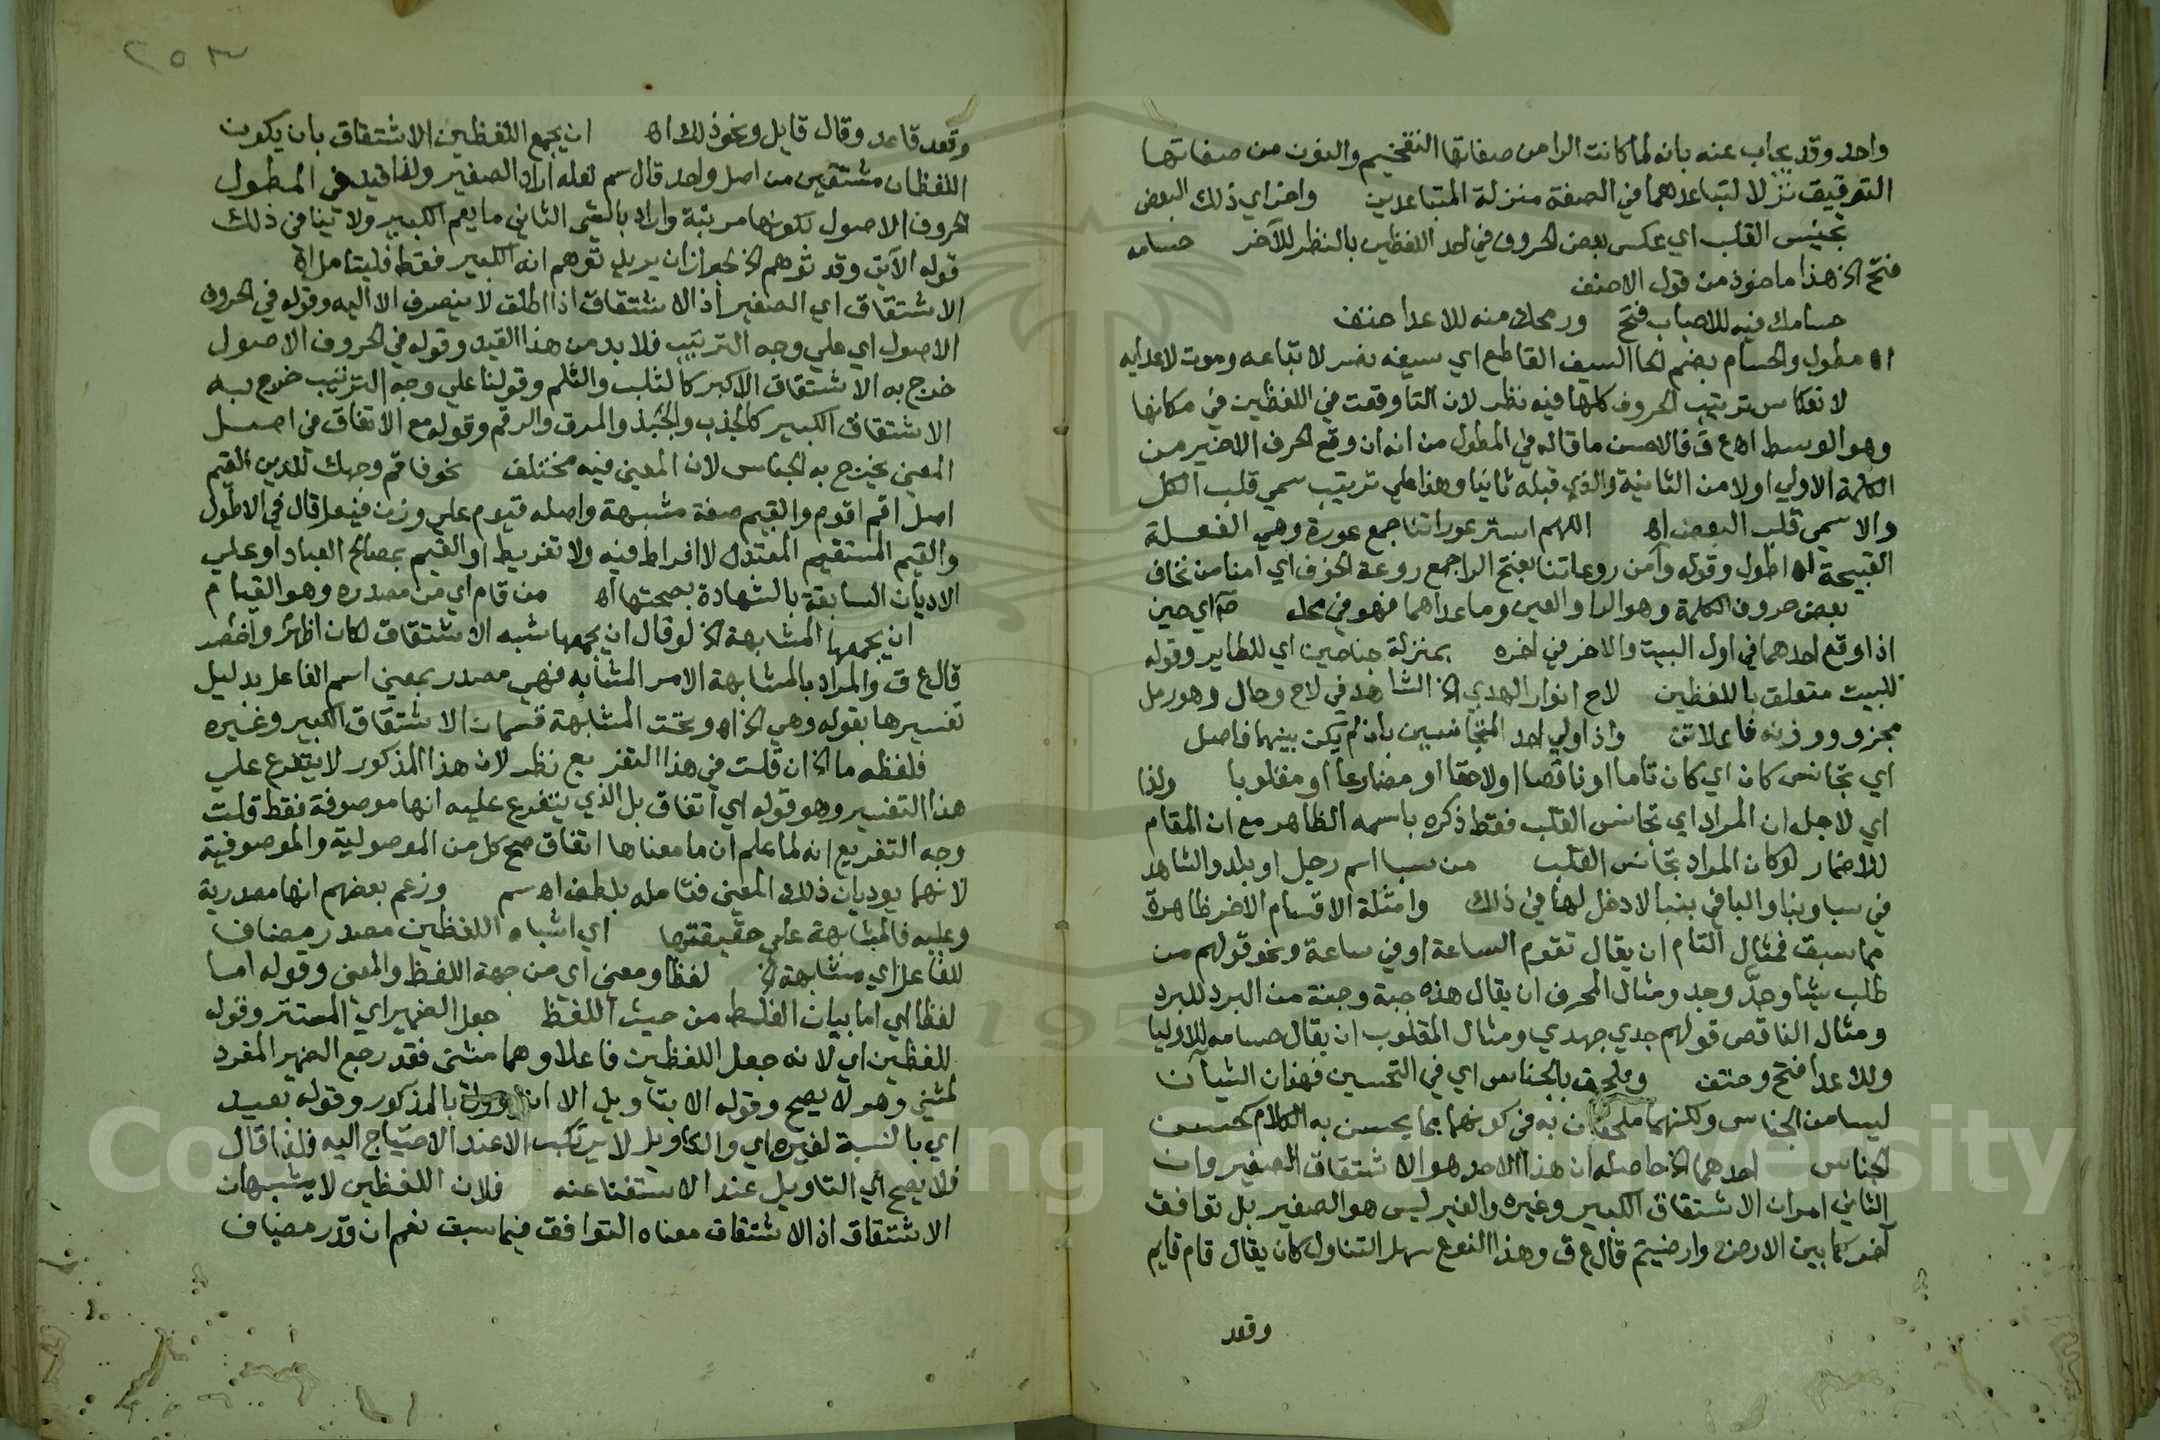 واحد وقد يجاب عنه بانه لما كانت الرا من صفاتها التفخيم والنون من صفاتها
الترقيق نزلا لتباعدهما في الصفة منزلة المتباعدين واخر اي ذلك البعض
تجنيس القلب اي عكس بعض الحروف في احد اللفظين بالنظر للآخر حسامه
فتح الخ هذا ماخوذ من قول الاحنف
حسامك فيه للاحباب فتح ورمحك منه للاعدا حتف
اه مطول والحسام بضم الحا السيف القاطع اي سيفه نصر لاتباعه وموت لاعدايه
لانعكاس ترتيب الحروف كلها فيه نظر لان التا وقعت في اللفظين في مكانها
وهو الوسط اه ع ق فالاحسن ما قاله في المطول من انه ان وقع الحرف الاخير من
الكلمة الاولي اولا من الثانية والذي قبله ثانيا وهذا علي ترتيب سمي قلب الكل
والا سمي قلب البعض اه اللهم استر عوراتنا جمع عورة وهي الفعلة
القبيحة اه اطول وقوله وآمن روعاتنا بفتح الرا جمع روعة الخوف اي امنا من نخاف
بعض حروف الكلمة وهو الرا والعين وما عداهما فهو في محله اي حين
اذا وقع احدهما في اول البيت والاخر في اخره بمنزلة جناحين اي للطاير وقوله
للبيت متعلق باللفظين لاح انوار الهدي الخ الشاهد في لاح وحال وهو رمل
مجزو ووزنه فاعلاتن واذا ولي احد المتجانسين بان لم يكن بينهما فاصل
اي تجانس كان اي كان تاما او ناقصا او لاحقا او مضارعا او مقلوبا ولذا
اي لاجل ان المراد اي تجانس القلب فقط ذكره باسمه الظاهر مع ان المقام
للاضمار لو كان المراد تجانس القلب من سبا اسم رجل او بلد والشاهد
في سبا وبنبا والبا في بنبا لا دخل لها في ذلك وامثلة الاقسام الاخر ظاهرة
مما سبق فمثال التام ان يقال تقوم الساعة او في ساعة ونحو قولهم من
طلب شيئا وجدّ وجد ومثال المحرف ان يقال هذه جبة وجنة من البرد للبرد
ومثال الناقص قولهم جدي جهدي ومثال المقلوب ان يقال حسامه للاوليا
وللاعدا فتح وحتف ويلحق بالجناس اي في التحسين فهذان الشيآن
ليسا من الجناس ولكنهما ملحقان به في كونهما مما يحسن به الكلام كحسن
الجناس احدهما الخ حاصله ان هذا الاحد هو الاشتقاق الصغير وان
الثاني امران الاشتقاق الكبير وغيره والغير ليس هو الصغير بل توافق
آخر كما بين الارض وارضيتم قال ع ق وهذا النوع سهل التناول كان يقال قام قايم
وقعد
٢٥٣
وقعد قاعد وقال قايل ونحو ذلك اه ان يجمع اللفظين الاشتقاق بان يكون
اللفظان مشتقين من اصل واحد قال سم لعله اراد الصغير ولذا قيد في المطول
الحروف الاصول بكونها مرتبة واراد بالقسم الثاني ما يعم الكبير ولا ينافي ذلك
قوله الآتي وقد توهم الخ لجواز ان يريد توهم انه الكبير فقط فليتامل اه
الاشتقاق اي الصغير اذ الاشتقاق اذا اطلق لا ينصرف الا اليه وقوله في الحروف
الاصول اي علي وجه الترتيب فلا بد من هذا القيد وقوله في الحروف الاصول
خرج به الاشتقاق الاكبر كالثلب والثلم وقولنا علي وجه الترتيب خرج به
الاشتقاق الكبير كالجذب والجبذ والمرق والرقم وقوله مع الاتفاق في اصل
المعني يخرج به الجناس لان المعني فيه مختلف نحو فاقم وجهك للدين القيم
اصل اقم اقوم والقيم صفة مشبهة واصله قيوم علي وزن فيعل قال في الاطول
والقيم المستقيم المعتدل لا افراط فيه ولا تفريط او القيم بمصالح العباد او علي
الاديان السابقة بالشهادة بصحتها اه من قام اي من مصدره وهو القيام
ان يجمعها المشابهة الخ لو قال ان يجمعها شبه الاشتقاق لكان اظهر واخصر
قال ع ق والمراد بالمشابهة الامر المشابه فهي مصدر بمعني اسم الفاعل بدليل
تفسيرها بقوله وهي الخ اه وتحت المشابهة قسمان الاشتقاق الكبير وغيره
فلفظه ما الخ ان قلت في هذا التفريع نظر لان هذا المذكور لا يتفرع علي
هذا التفسير وهو قوله اي اتفاق بل الذي يتفرع عليه انها موصوفة فقط قلت
وجه التفريع انه لما علم ان ما معناها اتفاق صح كل من الموصولية والموصوفية
لانهما يوديان ذلك المعني فتامله بلطف اه سم وزعم بعضهم انها مصدرية
وعليه فالمشابهة علي حقيقتها اي اشباه اللفظين مصدر مضاف
للفاعل اي مشابهة الخ لفظا ومعني اي من جهة اللفظ والمعني وقوله اما
لفظا اي اما بيان الغلط من حيث اللفظ جعل الضمير اي المستتر وقوله
للفظين اي لانه جعل اللفظين فاعلا وهما مثني فقد رجع الضمير المفرد
لمثني وهو لا يصح وقوله الا بتاويل الا ان بالمذكور وقوله بعيد
اي بالنسبة لغيره اي والتاويل لا يرتكب الا عند الاحتياج اليه فلذا قال
فلا يصح اي التاويل عند الاستغنا عنه فلان اللفظين لا يشبهان
الاشتقاق اذ الاشتقاق معناه التوافق فيما سبق نعم ان قدر مضاف